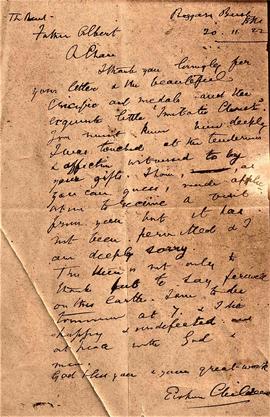 Th Revd.
Father Albert
20. 11. 22
A Chara
Thank you lovingly for
your letter & the beautiful
Crucifix and medals and the
exquisite little "Imitatio Christi".
You must know how deeply
I was touched at the tenderness
& affection witnessed to by
your gifts. I have, as
you can guess, made application
to receive a visit
from you but it has
not been permitted & I
am deeply sorry.
This then is not only to
thank but to say farewell
on this earth. I am to die
tomorrow at 7. & I die
happy & undefeated and
at peace with God
& men.
God bless you & your great work
Erskine Childers